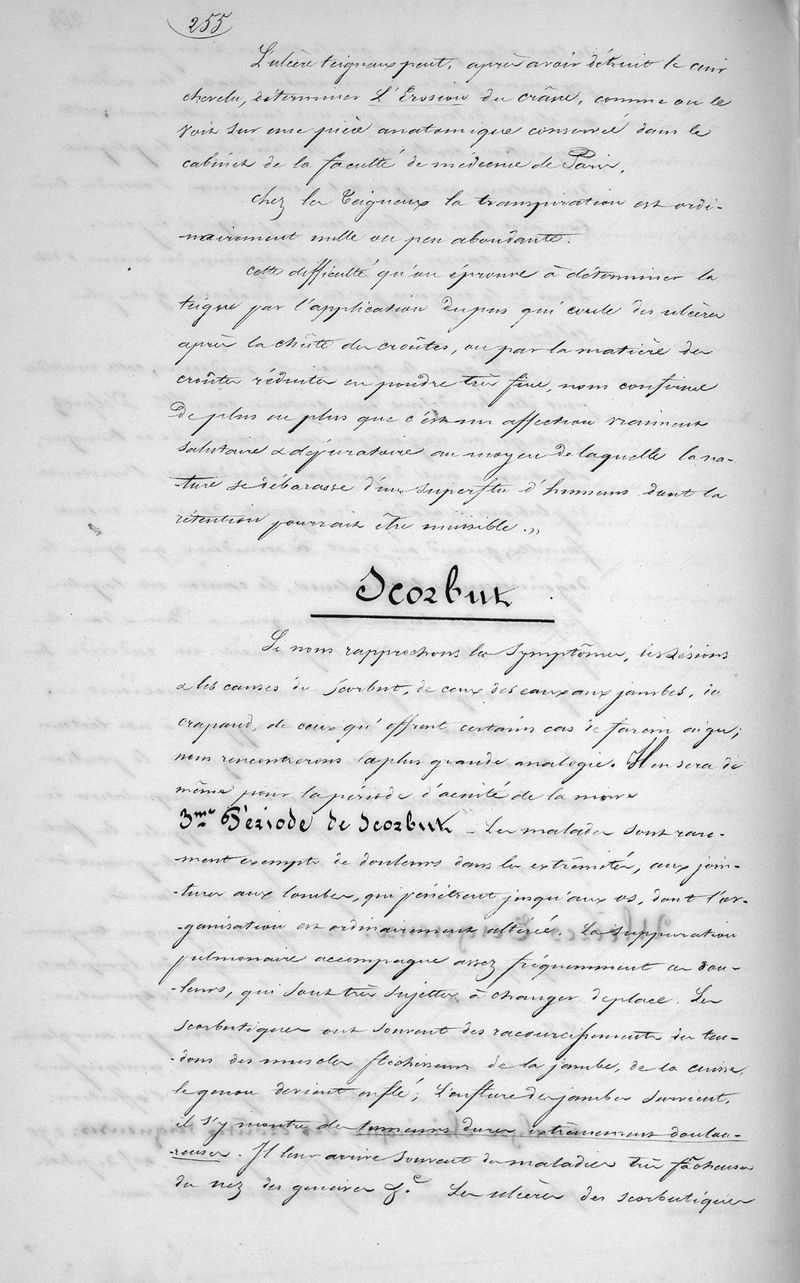 255
L'ulcère teigneux peut, après avoir détruit le cuir
chevelu, déterminer l'Erosion du crâne, comme on le
voit sur une pièce anatomique conservée dans le
cabinet de la faculté de médecine de Paris.
chez les Teigneux la transpiration est ordi-
-nairement nulle ou peu abondante.
cette difficulté qu'on éprouve à déterminer la
teigne par l'application du pus qui coule des ulcères
après la chûte des croûtes, ou par la matière des
croûtes réduites en poudre très fine, nous confirme
de plus en plus que c'est une affection vraiment
salutaire & dépuratoire au moyen de laquelle la na-
-ture se débarasse d'un superflu d'humeurs dont la
rétention pourrait être nuisible.,,
Scorbut
Si nous rapprochons les symptômes, les lésions
& les causes du scorbut, de ceux des eaux aux jambes, du
crapaud, de ceux qu'offrent certains cas de farcin aigu;
nous rencontrerons la plus grande analogie. Il en sera de
même pour la période d'acuité de la morve
3me Période de Scorbut - Les malades sont rare-
-ment exempts de douleurs dans les extrêmités, aux join-
-tures aux lombes, qui pénètrent jusqu'aux os, dont l'or-
-ganisation est ordinairement altérée. La suppuration
pulmonaire accompagne assez fréquemment ces dou-
-leurs, qui sont très sujettes à changer de place. Les
scorbutiques ont souvent des racourcissements des ten-
-dons des muscles fléchisseurs de la jambe, de la cuisse,
le genou devient enflé; l'enflure des jambes survient,
il s'y montre des tumeurs dures extrêmement doulou-
-reuses. Il leur arrive souvent des maladies très fâcheuses
du nez des gencives &c. Les ulcères des scorbutiques